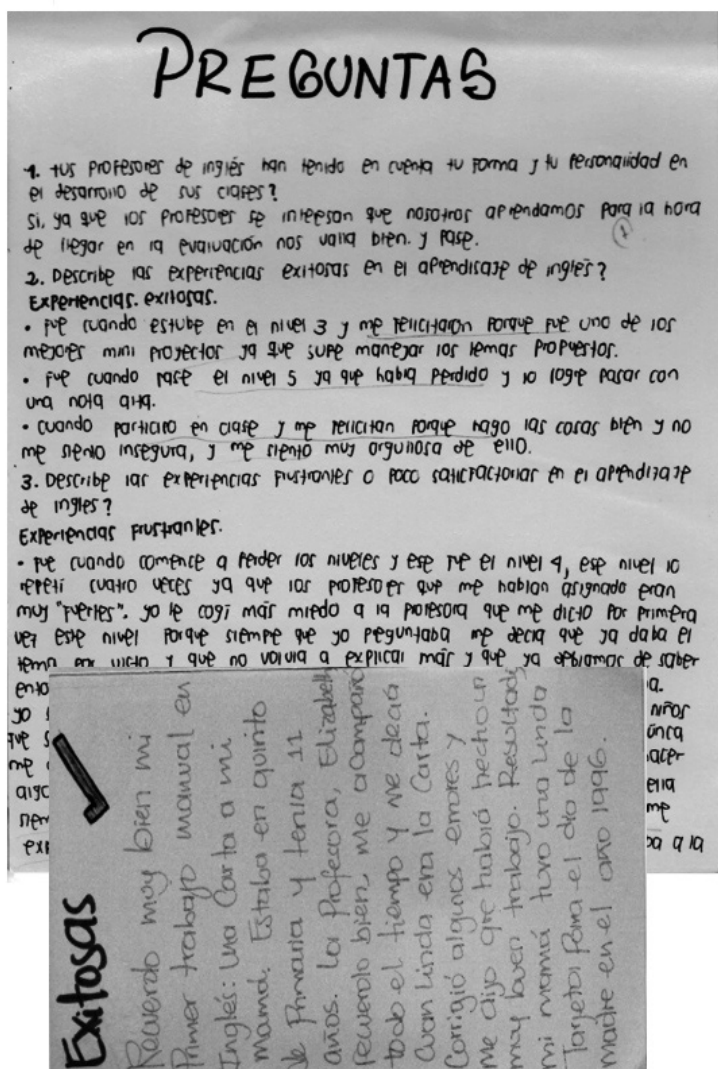 PREGUNTAS
1. tus profesores de inglés han tenido en cuenta tu forma y tu personalidad en
el desarrollo de sus clases?
si, ya que los profesores se interesan que nosotros aprendamos para la hora
de llegar en la evaluación nos valla bien. y pase.
2. Describe las experiencias exitosas en el aprendisaje de inglés?
Experiencias. exitosas.
• fue cuando estube en el nivel 3 y me felicitaron porque fue uno de los
mejores mini proyectos ya que supe manejar los temas propuestos.
• fue cuando pase el nivel 5 ya que habia perdido y lo logre pasar con
una nota alta.
• cuando participo en clase y me felicitan porque hago las cosas bien y no
me siento insegura, y me siento muy orgullosa de ello.
3. Describe las experiencias frustrantes o poco saticfactorias en el aprendizaje
de ingles?
Experiencias frustrantes.
• fue cuando comence a perder los niveles y ese fue el nivel 4, ese nivel lo
repetí cuatro veces ya que los profesores que me habían asignado eran
muy "fuertes". yo le cogí más miedo a la profesora que me dicto por primera
vez este nivel porque siempre que yo peguntaba me decía que ya daba el
tema por visto y que no volvia a explicar más y que ya debiamos de saber
yo niños
me
ella
me
ba a la
Exitosas
Recuerdo muy bien mi
Primer trabajo manual en
Inglés: Una Carta a mi
mamá. Estaba en quinto
de Primaria y tenía 11
años. La Profesora, Elizabeth
recuerdo bien, me acompañó
todo el tiempo y me decía
Cuan linda era la Carta.
Corrigió algunos errores y
me dijo que había hecho un
muy buen trabajo. Resultado
mi mamá tuvo una linda
Tarjeta para el día de la
madre en el año 1996.